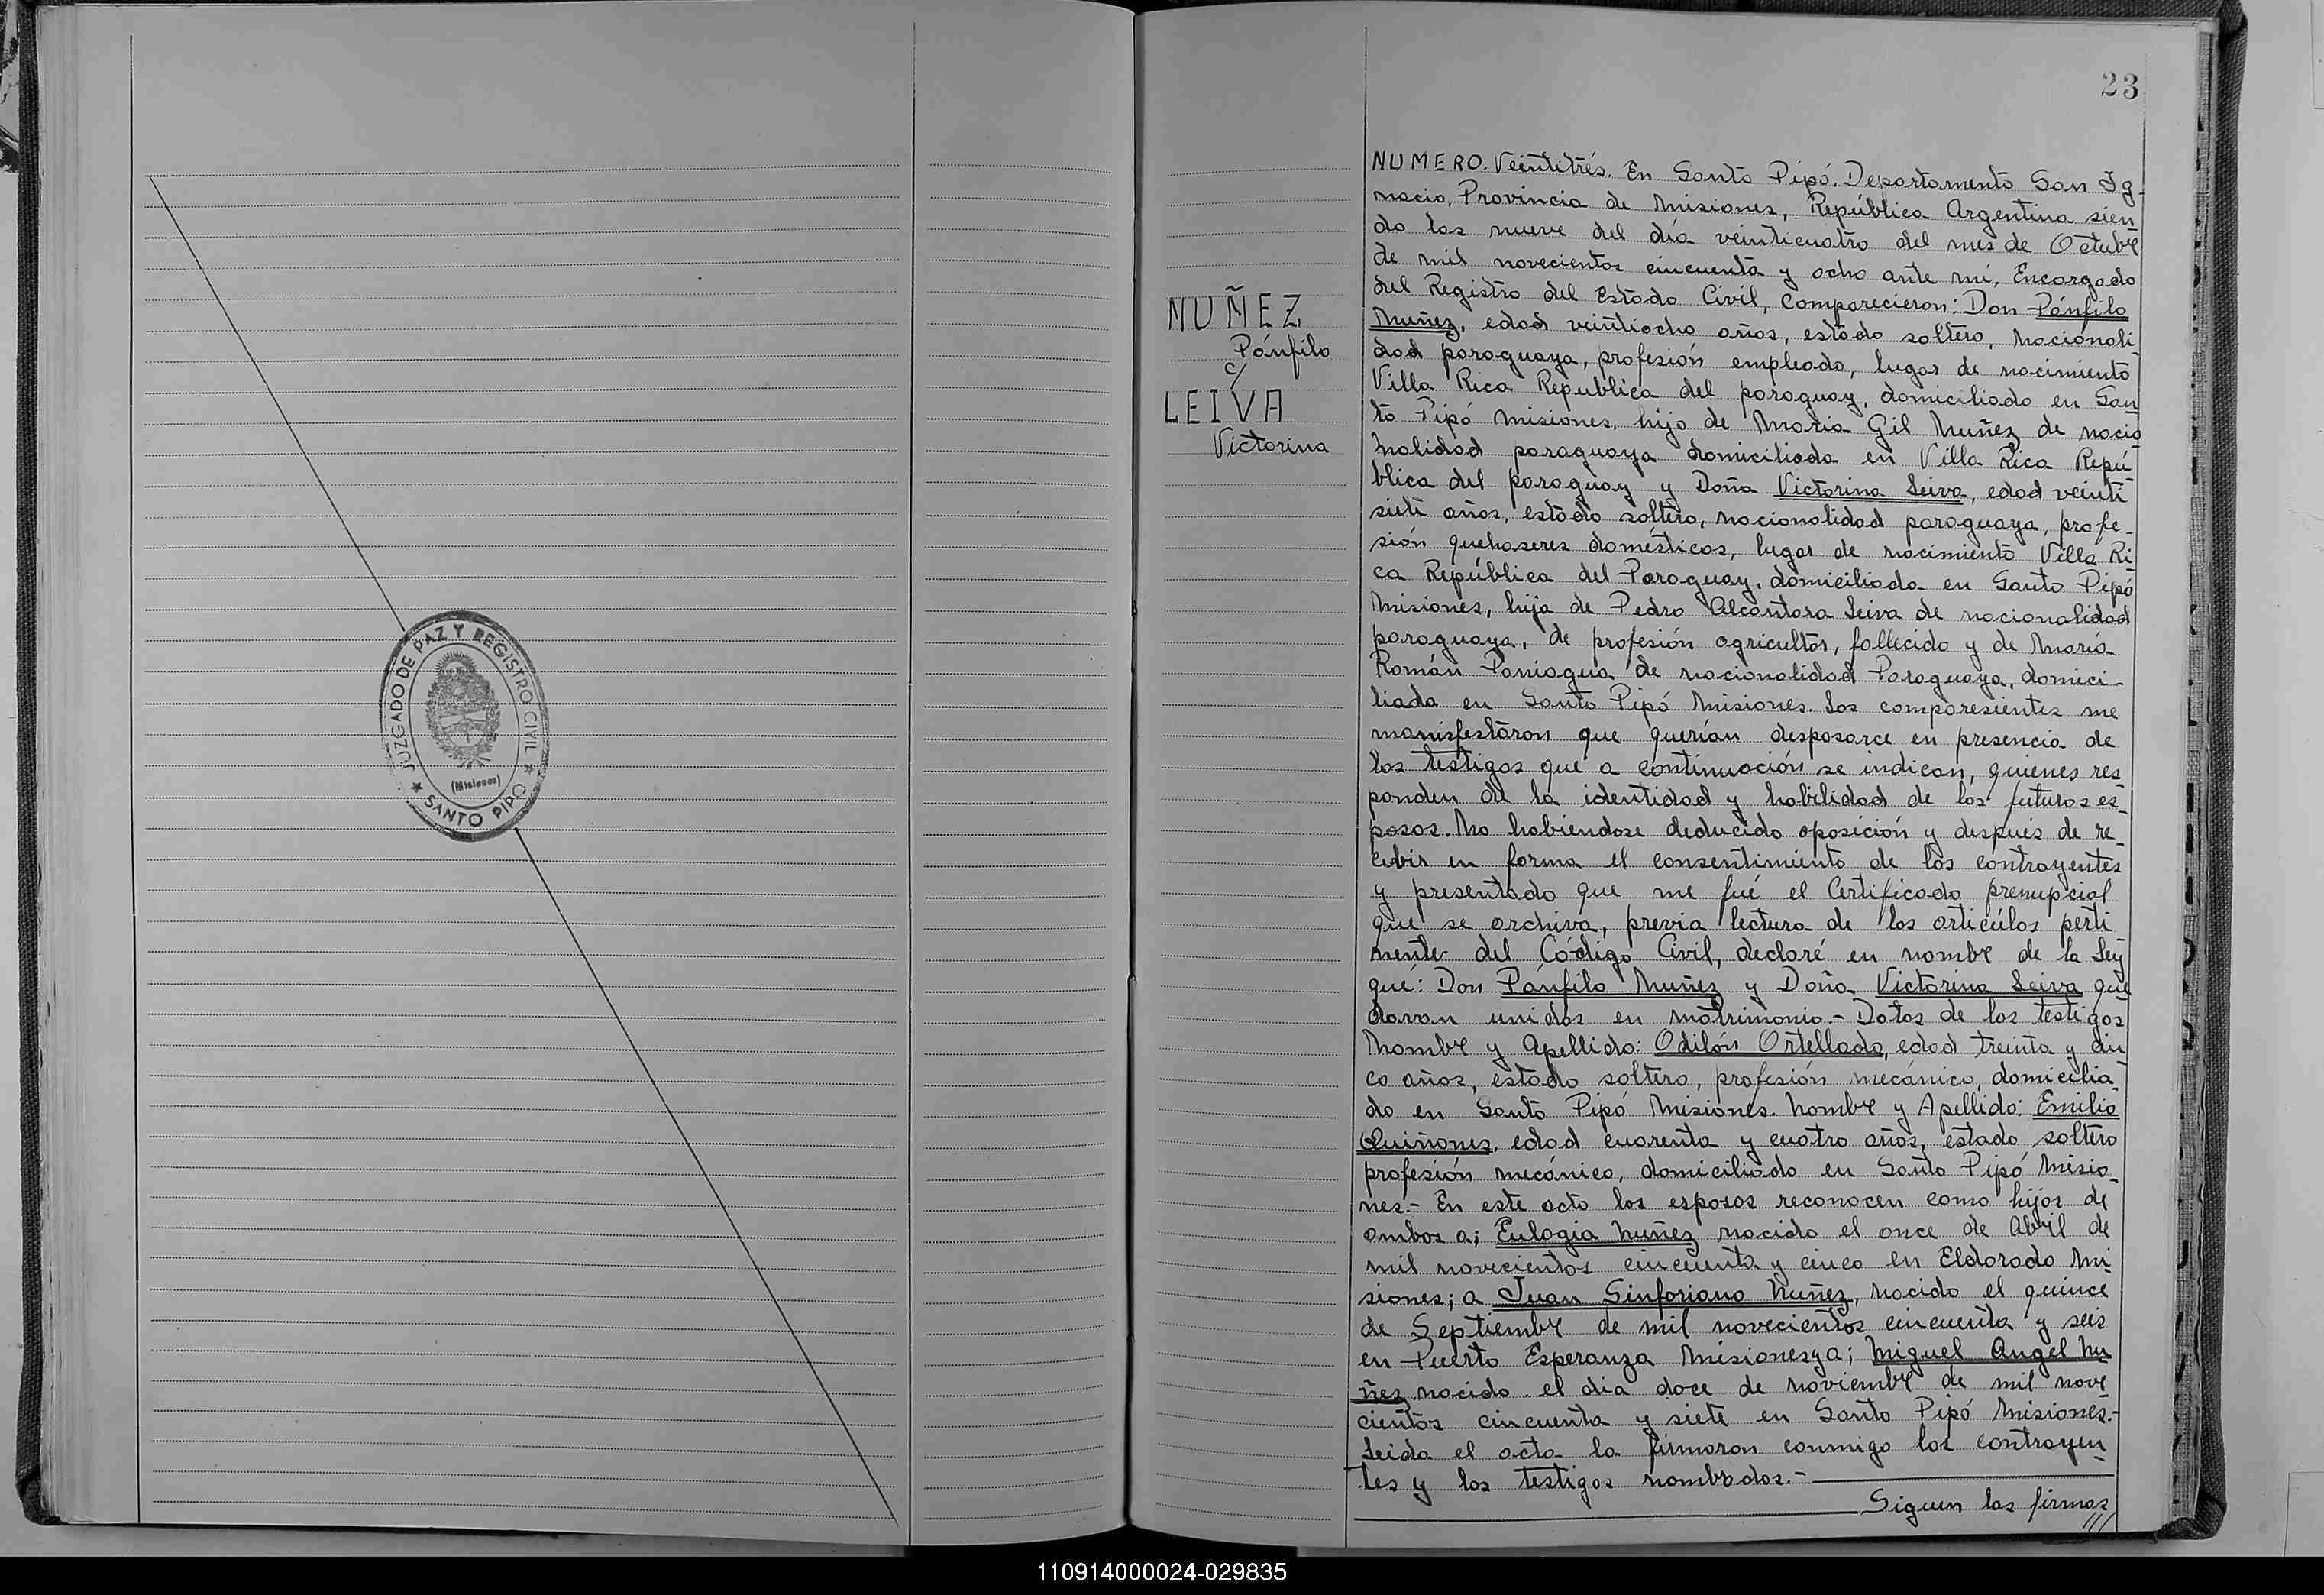 JUZGADO DE PAZ Y REGISTRO CIVIL
(Misiones)
SANTO PIPO
NUÑEZ
Pánfilo
c/
LEIVA
Victorina
23
NUMERO. Veintitrés. En Santo Pipó. Departamento San Ig-
nacio, Provincia de Misiones, República Argentina sien
do las nueve del día veinticuatro del mes de Octubre
de mil novecientos cincuenta y ocho ante mí, Encargado
del Registro del Estado Civil, comparecieron: Don Pánfilo
Nuñez, edad veintiocho años, estado soltero, nacionali-
dad paraguaya, profesión empleado, lugar de nacimiento
Villa Rica Republica del paraguay, domiciliado en San
to Pipó Misiones, hijo de Maria Gil Nuñez de nacio
nalidad paraguaya domiciliada en Villa Rica Repú
blica del paraguay y Doña Victorina Leiva, edad veinti
siete años, estado soltero, nacionalidad paraguaya, profe-
sión quehaseres domésticos, lugar de nacimiento Villa Ri
ca República del Paraguay, domiciliada en Santo Pipó
Misiones, hija de Pedro Alcántara Leiva de nacionalidad
paraguaya, de profesión agricultor, fallecido y de María
Román Paniagua de nacionalidad Paraguaya, domici-
liada en Santo Pipó Misiones. Los comparesientes me
manisfestaron que querían desposarce en presencia de
los testigos que a continuación se indican, quienes res
ponden de la identidad y habilidad de los futuros es-
posos. No habiendose deducido oposición y después de re
cibir en forma el consentimiento de los contrayentes
y presentado que me fué el Certificado prenupcial
que se archiva, previa lectura de los articúlos perti
nente del Código Civil, declaré en nombre de la Ley
qué: Don Pánfilo Nuñez y Doña Victorina Leiva que
davan unidos en matrimonio.- Datos de los testigos
Nombre y Apellido: Odilón Ortellado, edad treinta y cin
co años, estado soltero, profesión mecánico, domicilia-
do en Santo Pipó Misiones. Nombre y Apellido: Emilio
Quiñones, edad cuarenta y cuatro años, estado soltero
profesión mecánico, domiciliado en Santo Pipó Misio-
nes.- En este acto los esposos reconocen como hijos de
ambos a; Eulogia Nuñez nacida el once de Abril de
mil novecientos cincuenta y cinco en Eldorado Mi
siones; a Juan Sinforiano Nuñez, nacido el quince
de Septiembre de mil novecientos cincuenta y seis
en Puerto Esperanza Misiones y a; Miguel Angel Nu
ñez nacido el dia doce de noviembre de mil nove
cientos cincuenta y siete en Santo Pipó Misiones.-
Leida el acta la firmaron conmigo los contrayen-
tes y los testigos nombrados.-
Siguen las firmas
///
110914000024-029835